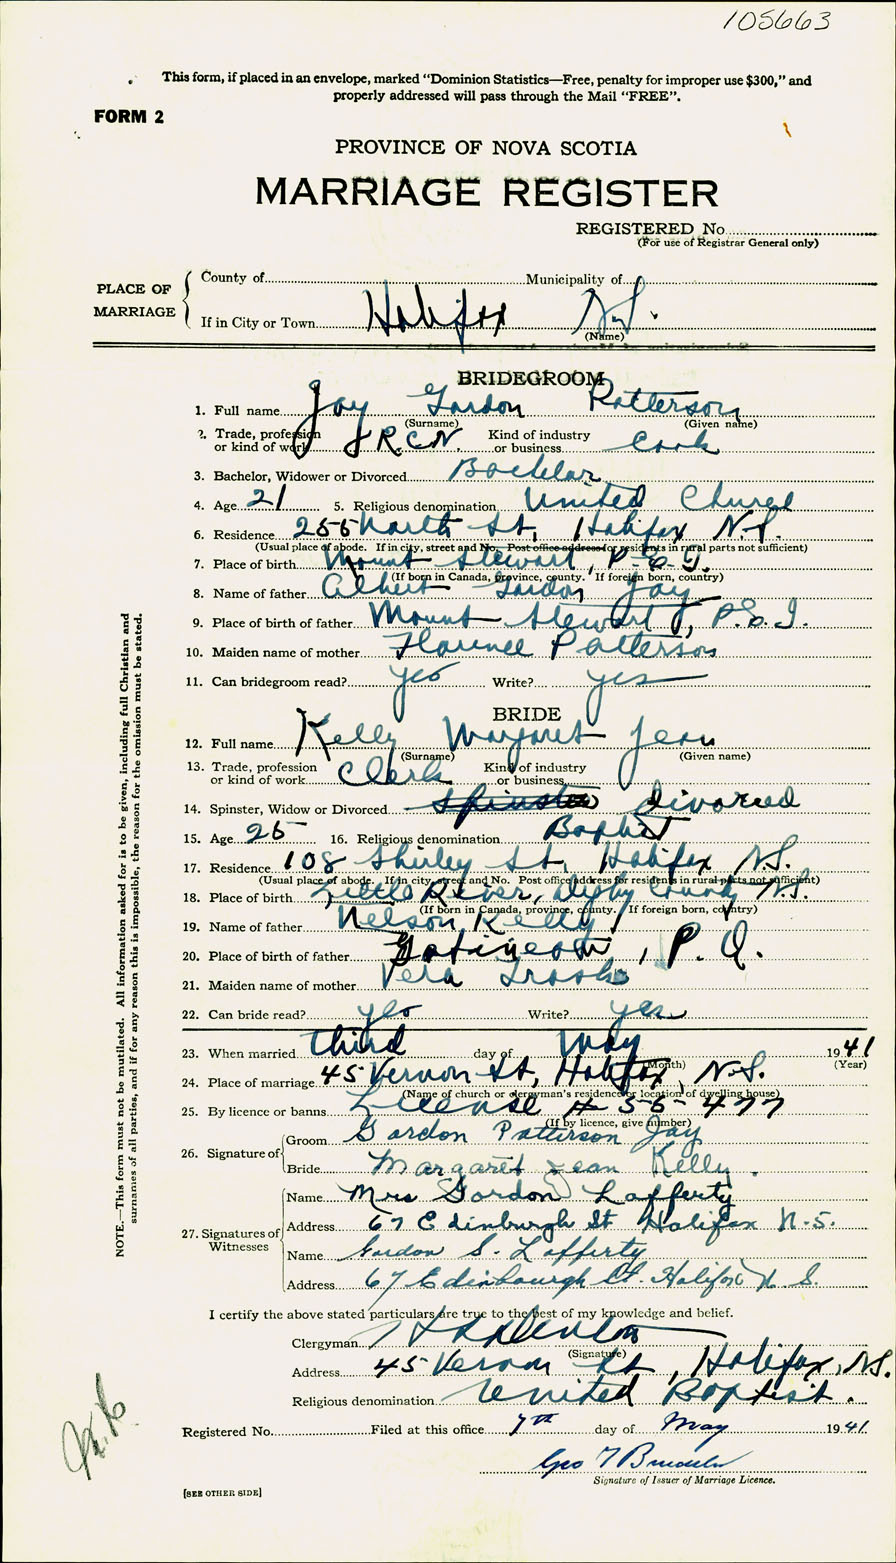 105663
This form, if placed in an envelope, marked "Dominion Statistics—Free, penalty for improper use $300," and
properly addressed will pass through the Mail "FREE".
FORM 2
PROVINCE OF NOVA SCOTIA
MARRIAGE REGISTER
REGISTERED No
(For use of Registrar General only)
PLACE OF MARRIAGE
County of Municipality of
If in City or Town Halifax N.S.
(Name)
BRIDEGROOM
1. Full name Jay Gordon Patterson
(Surname) (Given name)
2. Trade, profession or kind of work R.C.N. Kind of industry or business Cook
3. Bachelor, Widower or Divorced Bachelor
4. Age 21 5. Religious denomination United Church
6. Residence 256 North St, Halifax N.S.
(Usual place of abode. If in city, street and No. Post office address for residents in rural parts not sufficient)
7. Place of birth Mount Stewart, P.E.I.
(If born in Canada, province, county. If foreign born, country)
8. Name of father Albert Gordon Jay
9. Place of birth of father Mount Stewart, P.E.I.
10. Maiden name of mother Florence Patterson
11. Can bridegroom read? yes Write? yes
BRIDE
12. Full name Kelly Margaret Jean
(Surname) (Given name)
13. Trade, profession or kind of work Clerk Kind of industry or business
14. Spinster, Widow or Divorced Spinster divorced
15. Age 25 16. Religious denomination Baptist
17. Residence 108 Shirley St, Halifax N.S.
(Usual place of abode. If in city, street and No. Post office address for residents in rural parts not sufficient)
18. Place of birth Little River, Digby County N.S.
(If born in Canada, province, county. If foreign born, country)
19. Name of father Nelson Kelly
20. Place of birth of father Gatineau, P.Q.
21. Maiden name of mother Vera
22. Can bride read? yes Write? yes
23. When married third day of May 1941
(Month) (Year)
24. Place of marriage 45 Vernon St, Halifax, N.S.
(Name of church or clergyman's residence or location of dwelling house)
25. By licence or banns License # 55-477
(If by licence, give number)
26. Signature of
Groom Gordon Patterson Jay
Bride Margaret Jean Kelly.
27. Signatures of Witnesses
Name Mrs Gordon Lafferty
Address 67 Edinburgh St Halifax N.S.
Name Gordon S. Lafferty
Address 67 Edinbourgh St. Halifax N.S.
I certify the above stated particulars are true to the best of my knowledge and belief.
Clergyman
(Signature)
Address 45 Vernon St, Halifax, N.S.
Religious denomination United Baptist.
Registered No. Filed at this office 7th day of May 1941.
Geo
Signature of Issuer of Marriage Licence.
[SEE OTHER SIDE]
NOTE.—This form must not be mutilated. All information asked for is to be given, including full Christian and
surnames of all parties, and if for any reason this is impossible, the reason for the omission must be stated.